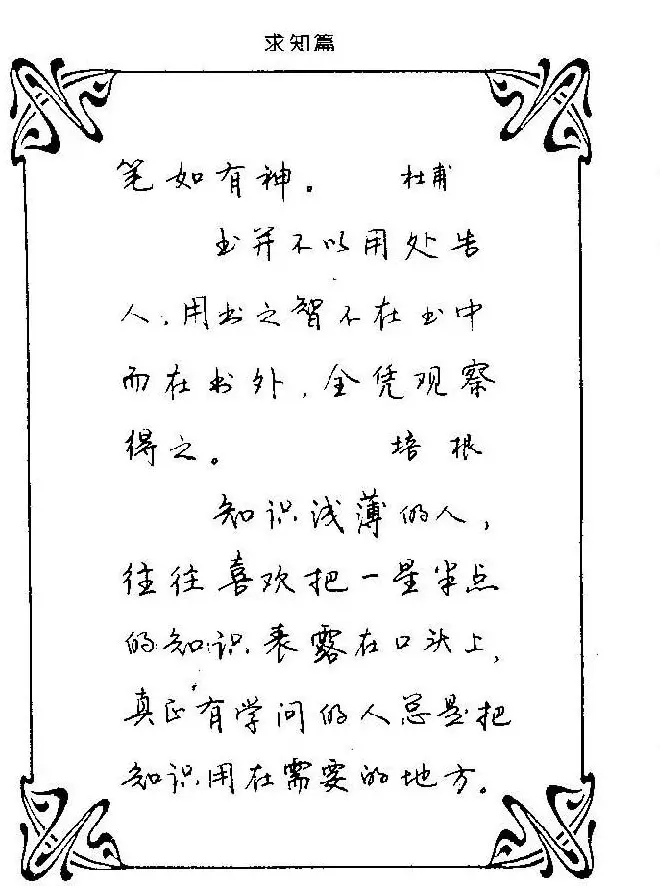 求知篇
笔如有神。 杜甫
书并不以用处告
人,用书之智不在书中
而在书外,全凭观察
得之。 培根
知识浅薄的人,
往往喜欢把一星半点
的知识表露在口头上,
真正有学问的人总是把
知识用在需要的地方。